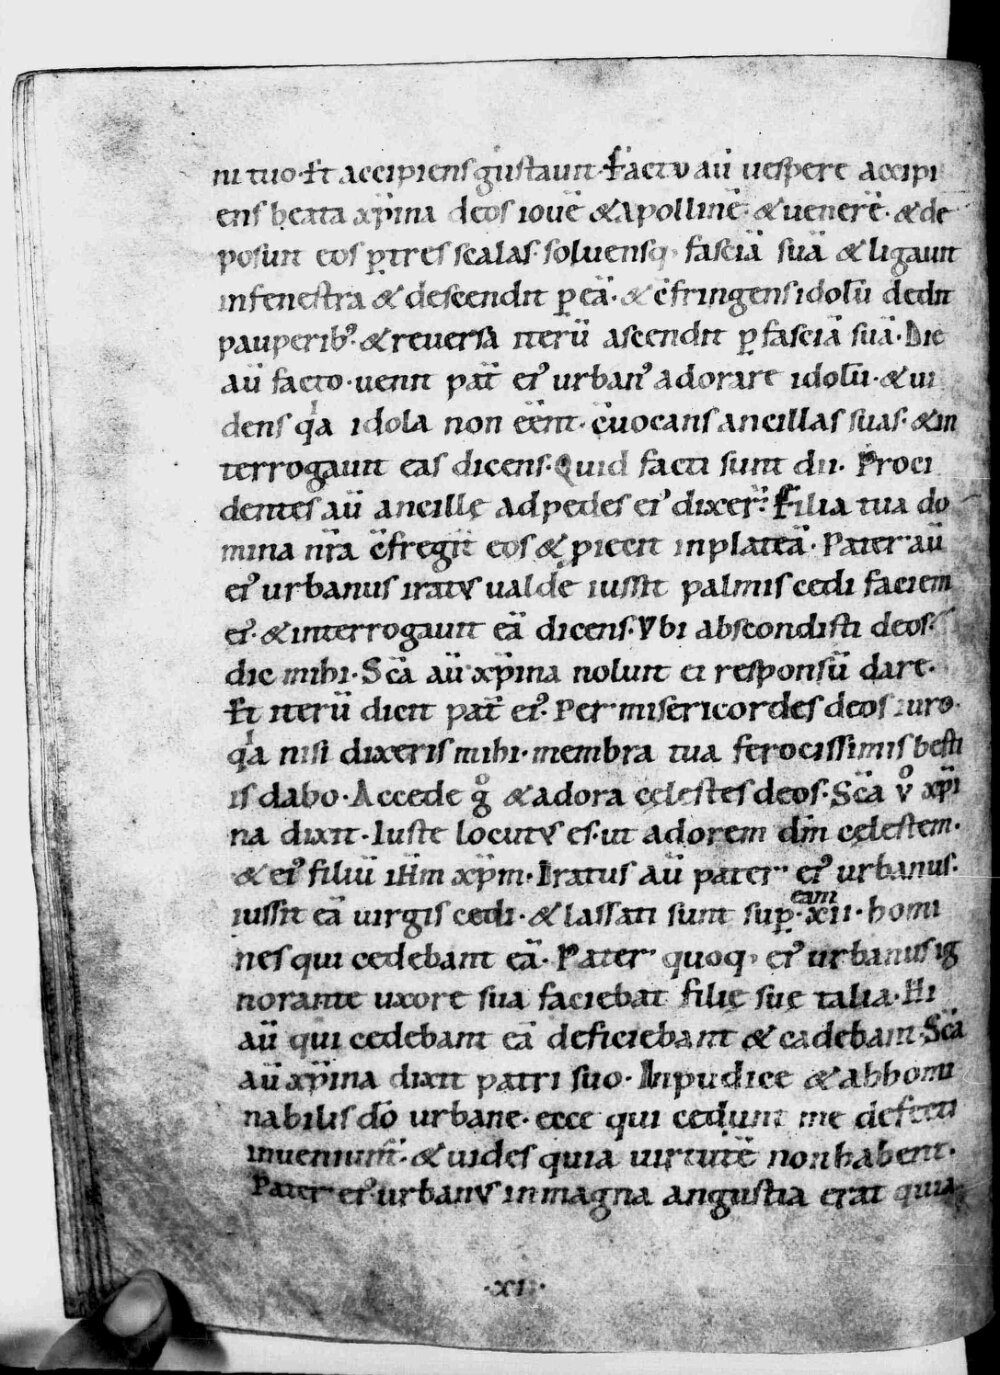 ni tuo. Et accipiens gustauit. Factv aū uespere accipi
ens beata xp̄ina deos iouē & apollinē. & uenerē. & de
posuit eos ꝑ tres scalas. soluensq; fasciā suā & ligauit
in fenestra & descendit ꝑ eā. & c̄fringens idolū dedit
pauperib; & reuersa iterū ascendit ꝑ fasciā suā. Die
aū facto. uenit pat̄ ei᾽ urban᾽ adorare idolū. & ui
dens qͥa idola non eēnt. c̄uocans ancillas suas. & in
terrogauit eas dicens. Quid facti sunt dii. Proci
dentes aū ancillę ad pedes ei᾽ dixer̄. Filia tua do
mina nr̄a c̄fregit eos & ꝓiecit in plateā. Pater aū
ei᾽ urbanus iratv̄s ualde iussit palmis cedi faciem
ei᾽. & interrogauit eā dicens. Vbi abscondisti deos.
dic mihi. Sc̄a aū xp̄ina noluit ei responsū dare.
Et iterū dicit pat̄ ei᾽. Per misericordes deos iuro.
qͥa nisi dixeris mihi. membra tua ferocissimis besti
is dabo. Accede gͦ & adora cęlestes deos. Sc̄a vͦ xp̄i
na dixit. Iuste locutus es. ut adorem dm̄ cęlestem.
& ei᾽ filiū ihm̄ xp̄m. Iratus aū pater ei᾽ urbanus.
iussit eā uirgis cedi. & lassati sunt suꝑ eam xii. homi
nes qui cedebant eā. Pater quoq; ei᾽ urbanus ig
norante uxore sua faciebat filię suę talia. Hi
aū qui cedebant eā deficiebant & cadebant. Sc̄a
aū xp̄ina dixit patri suo. Inpudice & abhomi
nabilis dō urbane. ecce qui cedunt me defecti
inueniunt᾽. & uides quia uirtutē non habent.
Pater ei᾽ urbanus in magna angustia erat quia